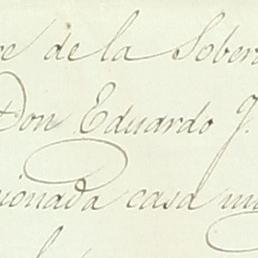 de la Sober
Don Eduardo J.
ionada casa mu